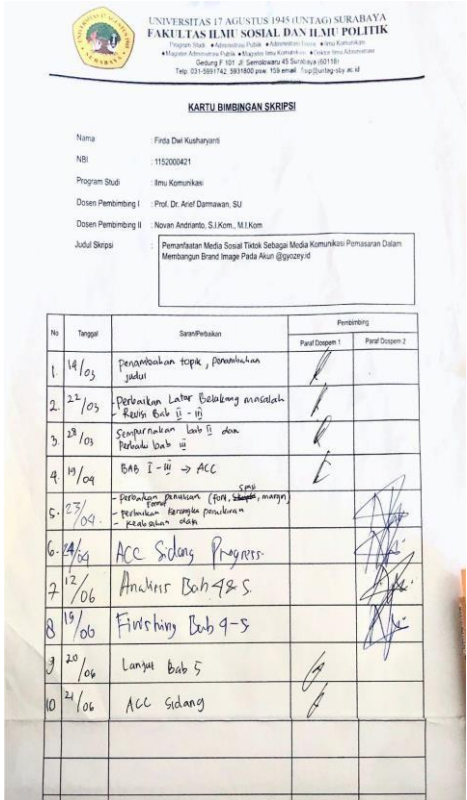 UNIVERSITAS 17 AGUSTUS 1945 (UNTAG) SURABAYA
FAKULTAS ILMU SOSIAL DAN ILMU POLITIK
Program Studi • Administrasi Publik • Administrasi Bisnis • Ilmu Komunikasi
• Magister Administrasi Publik • Magister Ilmu Komunikasi • Doktor Ilmu Administrasi
Gedung F 101 Jl. Semolowaru 45 Surabaya (60118)
Telp. 031-5991742, 5931800 psw. 159 email. fisip@untag-sby.ac.id
KARTU BIMBINGAN SKRIPSI
Nama : Firda Dwi Kusharyanti
NBI : 1152000421
Program Studi : Ilmu Komunikasi
Dosen Pembimbing I : Prof. Dr. Arief Darmawan, SU
Dosen Pembimbing II : Novan Andrianto, S.I.Kom., M.I.Kom
Judul Skripsi : Pemanfaatan Media Sosial Tiktok Sebagai Media Komunikasi Pemasaran Dalam
Membangun Brand Image Pada Akun @gyozey.id
No Tanggal Saran/Perbaikan Pembimbing
Paraf Dospem 1 Paraf Dospem 2
1. 14/03 Penambahan topik, penambahan
judul
2. 22/03 - Perbaikan Latar Belakang masalah
- Revisi Bab II - III
3. 28/03 Sempurnakan bab II dan
Perbaiki bab III
4. 19/04 BAB I - III → ACC
5. 23/04 - Perbaikan penulisan (font, spasi, margin)
- perbaikan kerangka pemikiran
- Keabsahan data
6. 24/04 ACC Sidang Progress.
7 12/06 Analisis Bab 4 & 5.
8 19/06 Finishing Bab 4-5
9 20/06 Lanjut Bab 5
10 21/06 ACC Sidang